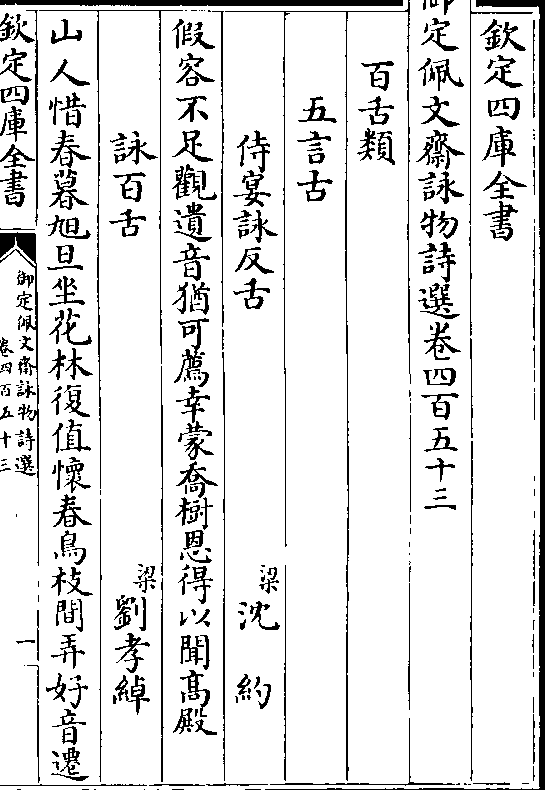 欽定四庫全書
御定佩文齋詠物詩選卷四百五十三
百舌類
五言古
侍宴詠反舌
梁沈約
假容不足觀遺音猶可薦幸蒙喬樹恩得以聞高殿
詠百舌
梁劉孝綽
山人惜春暮旭旦坐花林復值懷春鳥枝間弄好音遷
欽定四庫全書
御定佩文齋詠物詩選
卷四百五十三
一